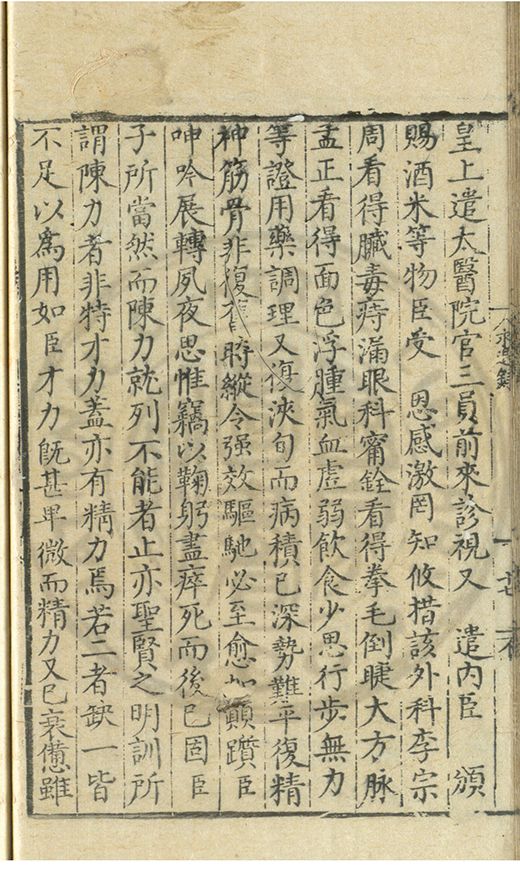 皇上遣太醫院官三員前來診視又　遣內臣　頒
賜酒米等物臣受　恩感激罔知攸措該外科李宗
周看得臟毒痔漏眼科甯銓看得拳毛倒睫大方脉
孟正看得面色浮腫氣血虛弱飲食少思行步無力
等證用藥調理又復浹旬而病積已深勢難平復精
神筋骨非復舊時縱令强效驅馳必至愈加顛躓臣
呻吟展轉夙夜思惟竊以鞠躬盡瘁死而後已固臣
子所當然而陳力就列不能者止亦聖賢之明訓所
謂陳力者非特才力蓋亦有精力焉若二者缺一皆
不足以爲用如臣才力旣甚卑微而精力又已衰憊雖